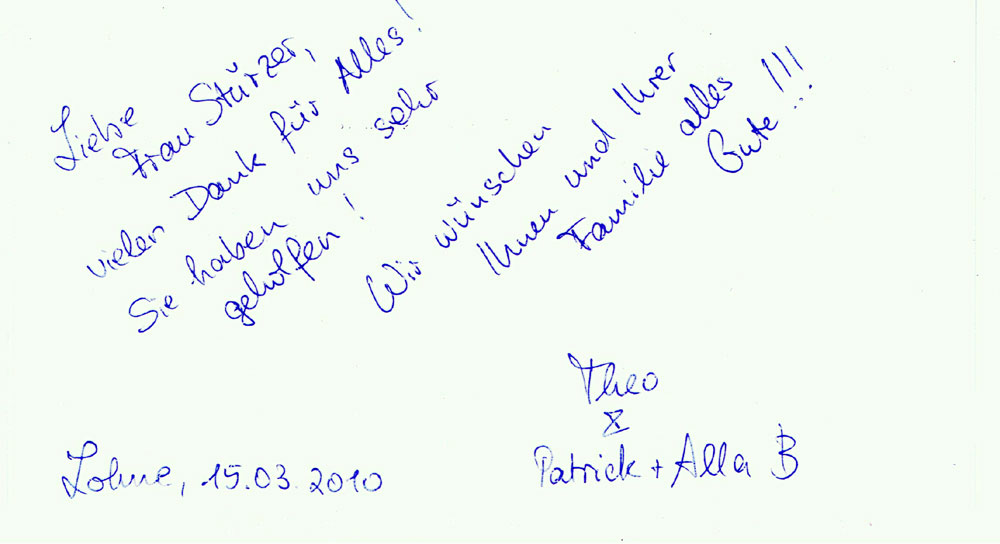 Liebe
Frau Stürzer,
vielen Dank für Alles!
Sie haben uns sehr
geholfen!
Wir wünschen
Ihnen und Ihrer
Familie alles
Gute...!!!
Theo
X
Patrick + Alla B
Lohne, 15.03.2010